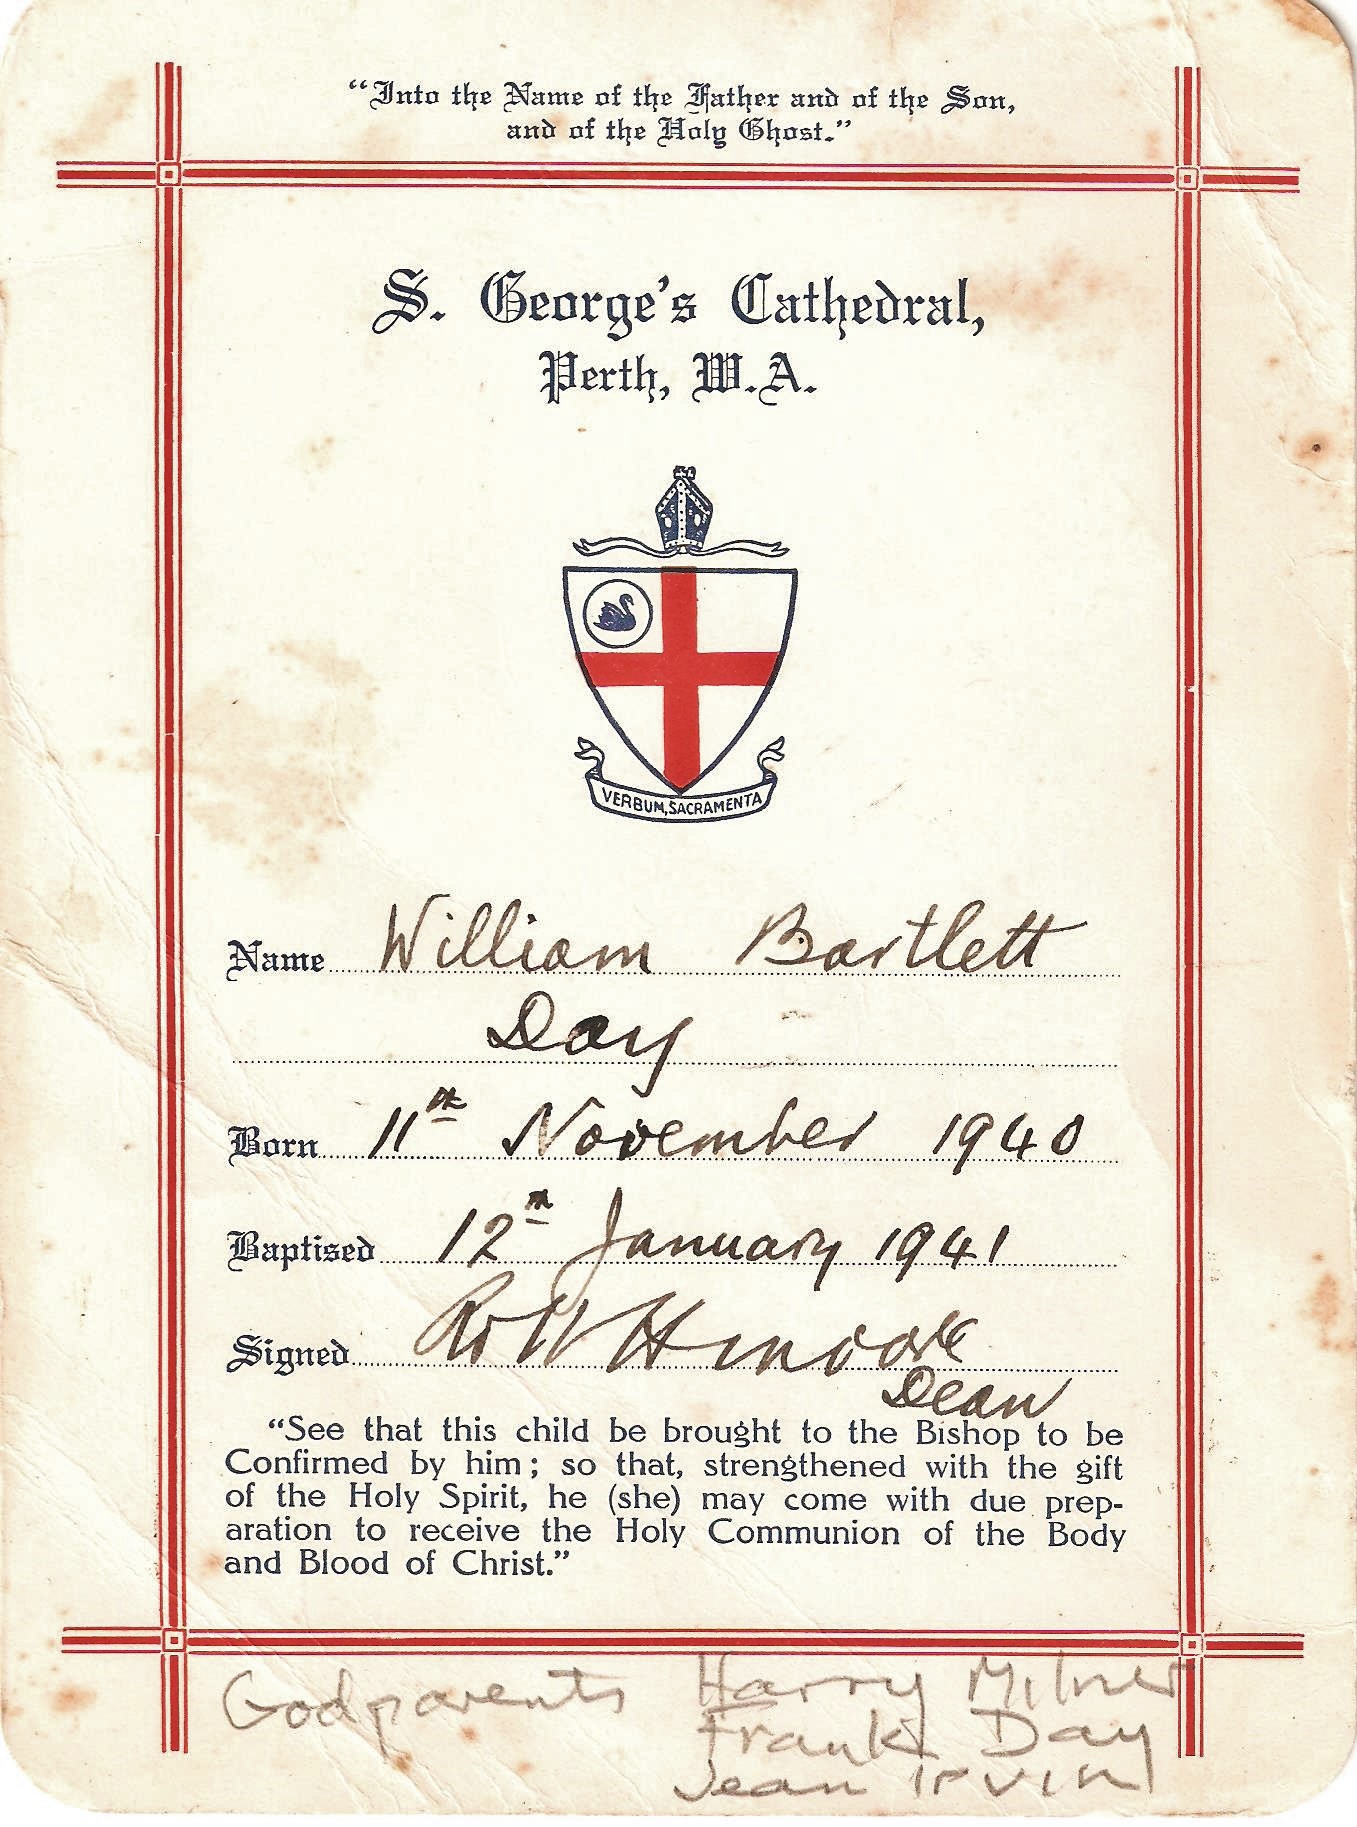 “Into the Name of the Father and of the Son,
and of the Holy Ghost.”
S. George's Cathedral,
Perth, W.A.
VERBUM, SACRAMENTA
Name William Bartlett
Day
Born 11th November 1940
Baptised 12th January 1941
Signed
Dean
“See that this child be brought to the Bishop to be
Confirmed by him; so that, strengthened with the gift
of the Holy Spirit, he (she) may come with due prep-
aration to receive the Holy Communion of the Body
and Blood of Christ.”
Godparents Harry Milner
Frank Day
Jean IRVIN